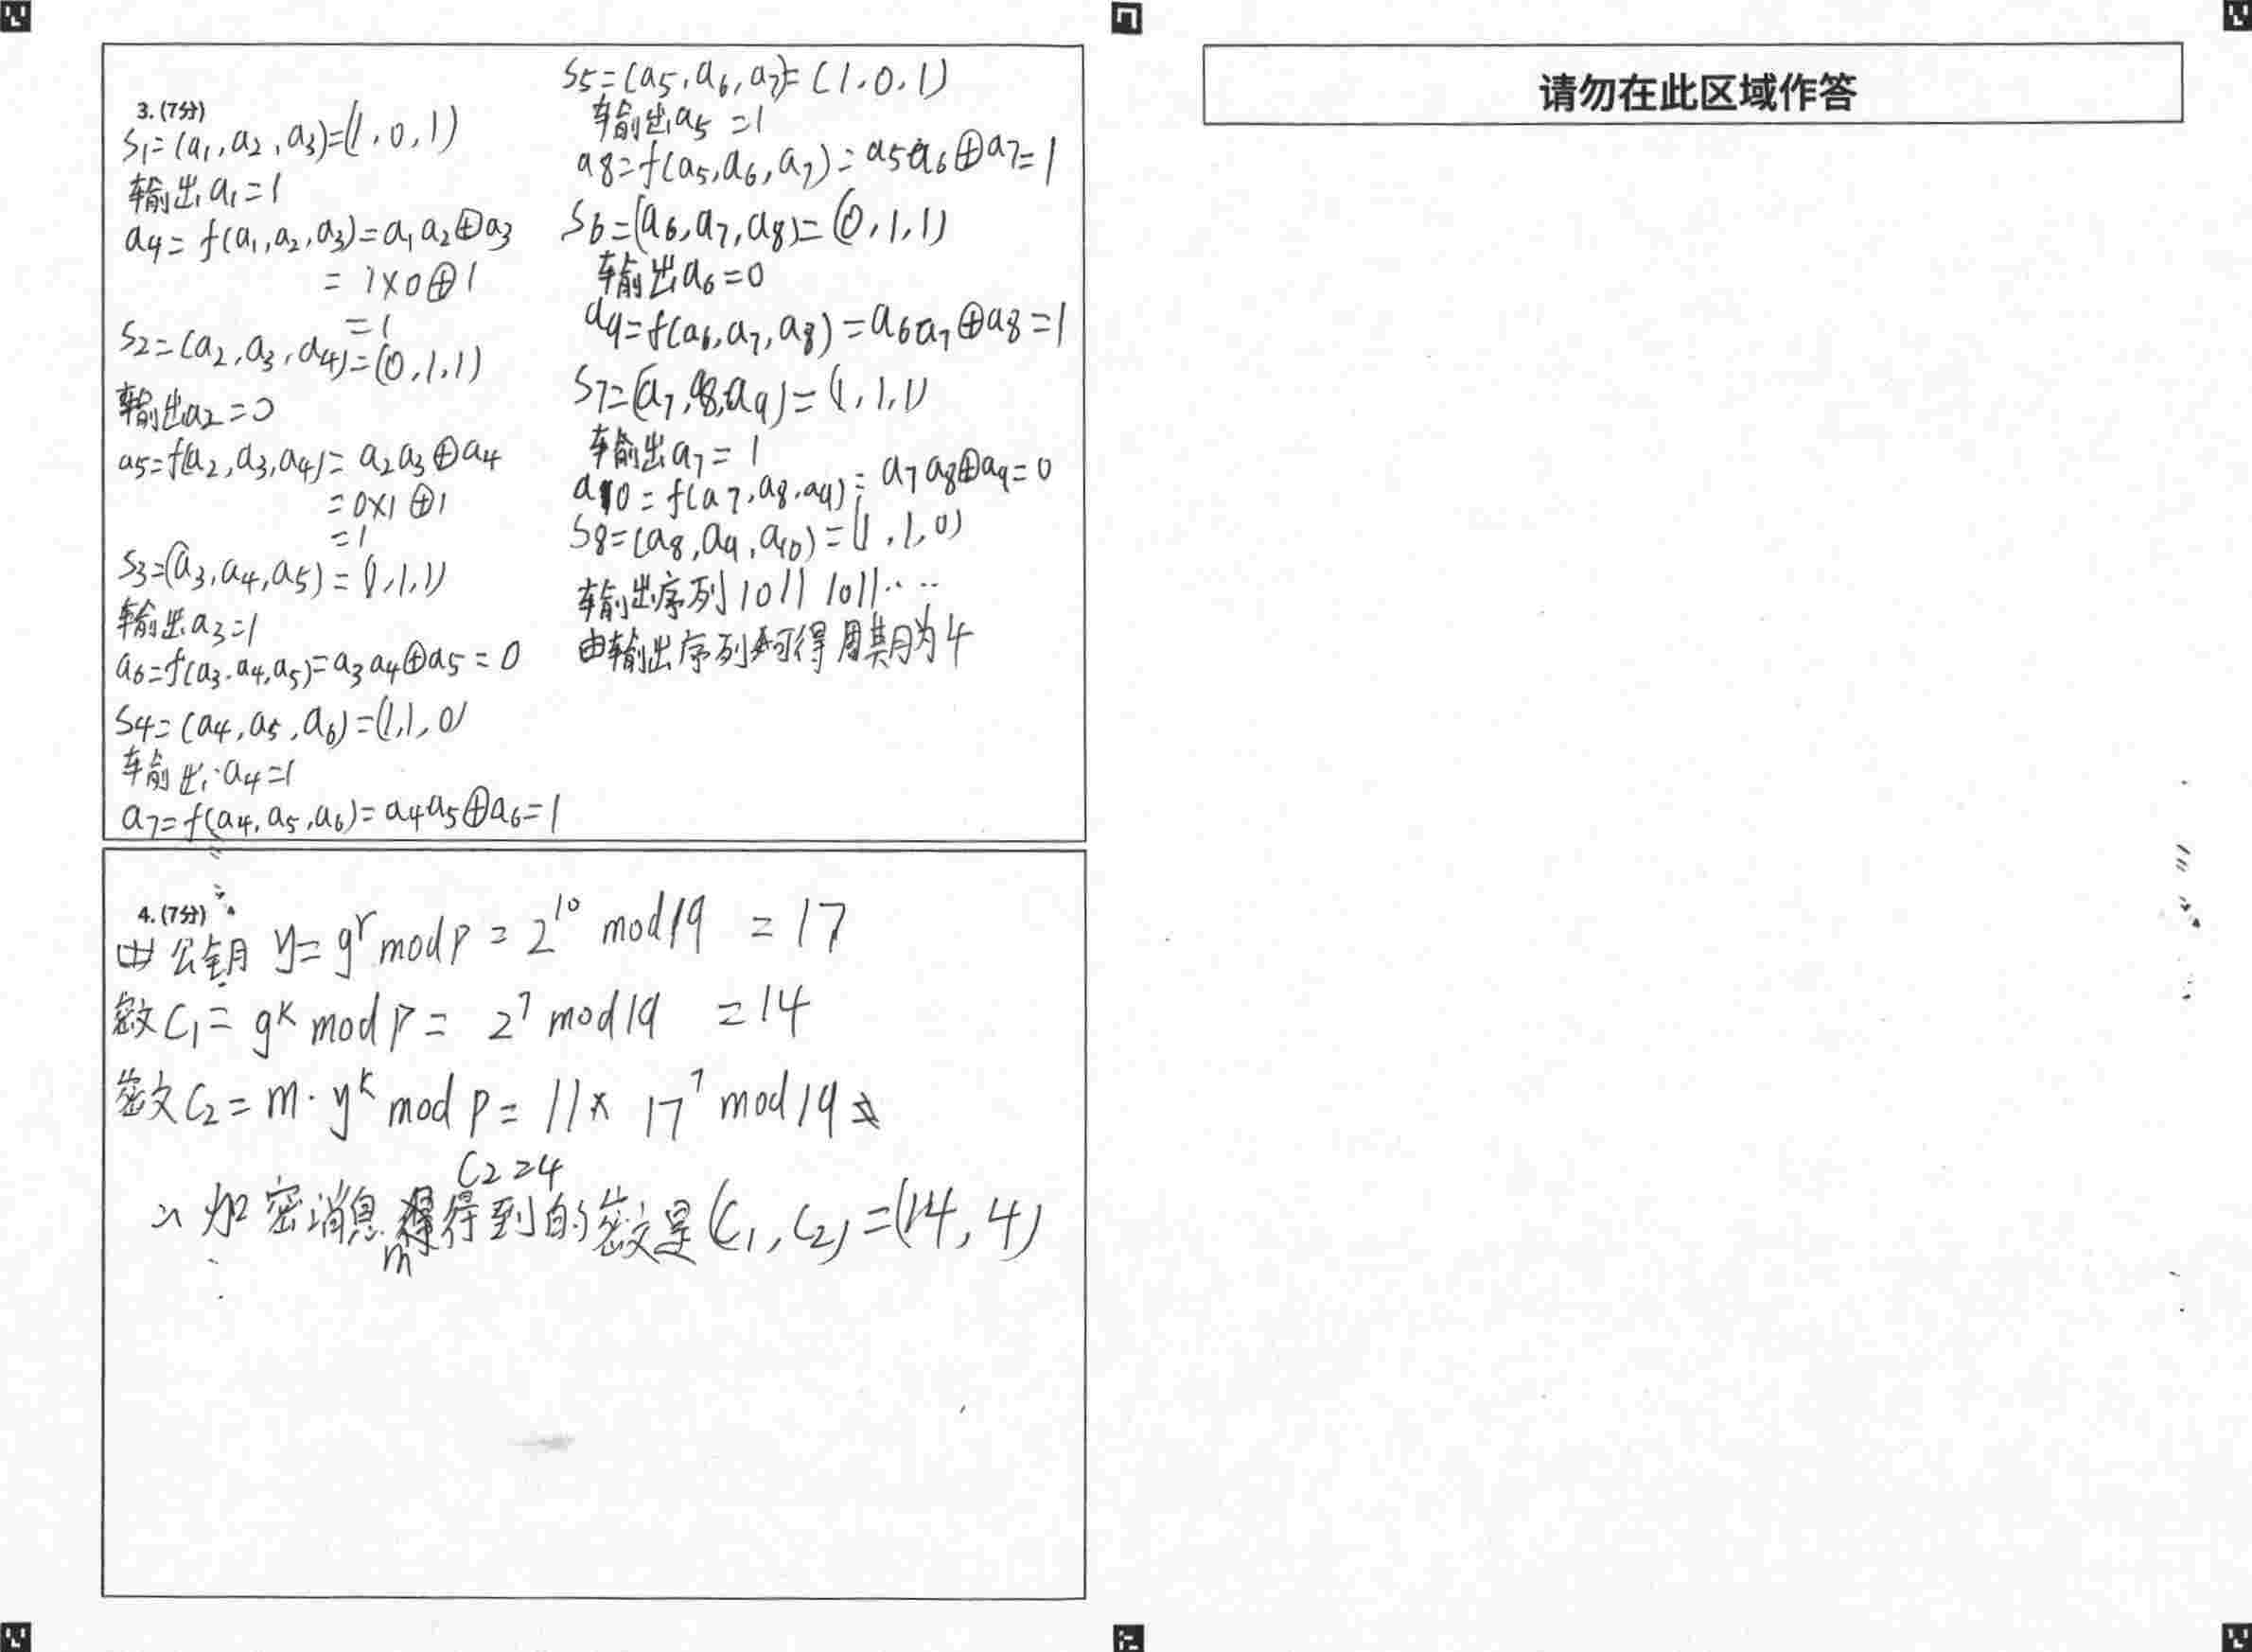 3. (7分)
S1=(a1,a2,a3)=(1,0,1)
输出a1=1
a4=f(a1,a2,a3)=a1a2⊕a3
=1×0⊕1
=1
S2=(a2,a3,a4)=(0,1,1)
输出a2=0
a5=f(a2,a3,a4)=a2a3⊕a4
=0×1⊕1
=1
S3=(a3,a4,a5)=(1,1,1)
输出a3=1
a6=f(a3.a4,a5)=a3a4⊕a5=0
S4=(a4,a5,a6)=(1,1,0)
输出a4=1
a7=f(a4,a5,a6)=a4a5⊕a6=1
S5=(a5,a6,a7)=(1,0,1)
输出a5=1
a8=f(a5,a6,a7)=a5a6⊕a7=1
S6=(a6,a7,a8)=(0,1,1)
输出a6=0
a9=f(a6,a7,a8)=a6a7⊕a8=1
S7=(a7,a8,a9)=(1,1,1)
输出a7=1
a10=f(a7,a8,a9)=a7a8⊕a9=0
S8=(a8,a9,a10)=(1,1,0)
输出序列1011 1011····
由输出序列可得周期为4
4. (7分)
由公钥 y=g^r mod p=2^10 mod19 =17
密文C1=g^k mod p=2^7 mod19 =14
密文C2=m·y^k mod p=11×17^7 mod19
C2=4
∴加密消息m得到的密文是(C1,C2)=(14,4)
请勿在此区域作答